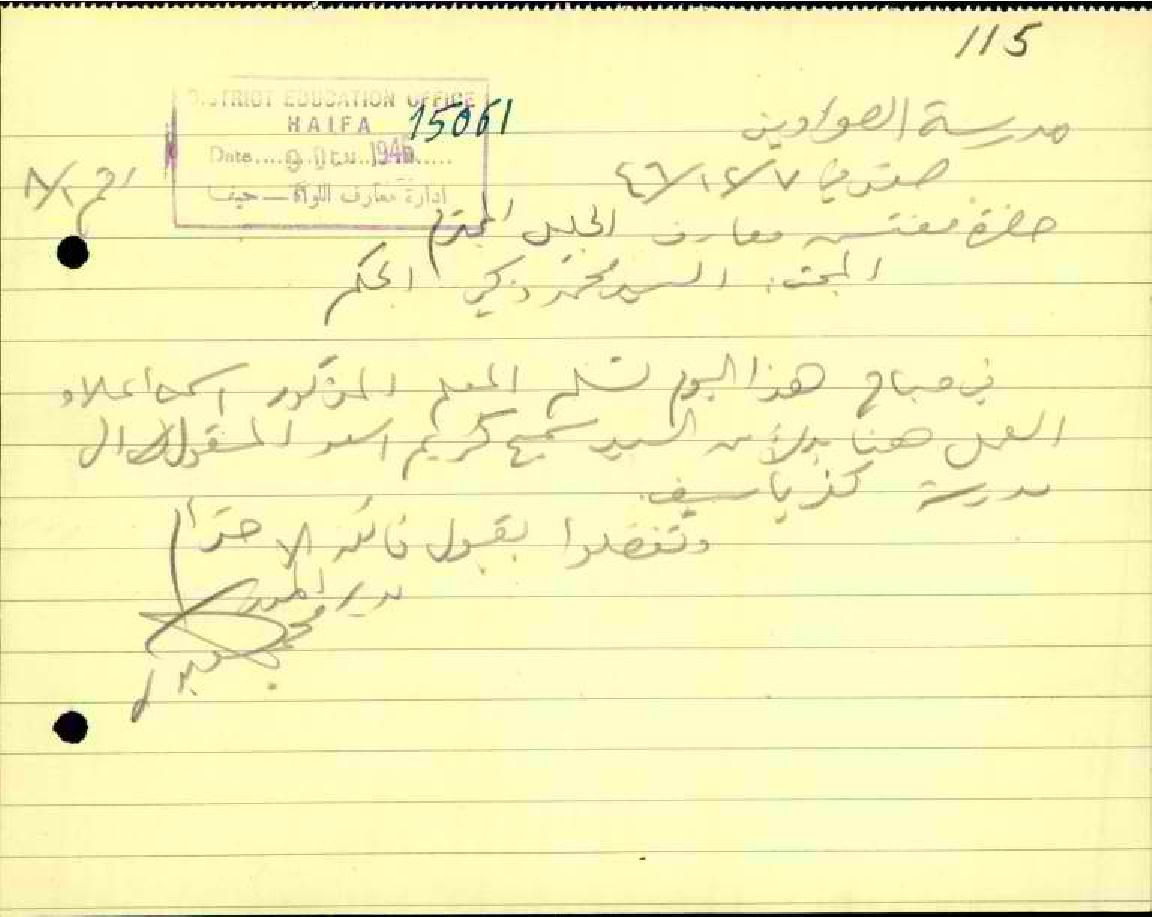 115
DISTRICT EDUCATION OFFICE
HAIFA
15061
Date.... 9 DEC 1946 ......
ادارة معارف اللواء — حيفا
مدرسة الصوادين
٤٦/١٢/٧
حضرة مفتش معارف الجليل المحترم
المبحث: السيد محمد زكي الحكم
في صباح هذا اليوم تسلم المعلم المذكور اسمه اعلاه
العمل هنا بدلاً من السيد سميح كريم اسعد المنقول الى
مدرسة كفر ياسيف.
وتفضلوا بقبول فائق الاحترام
مدير المدرسة
محمد